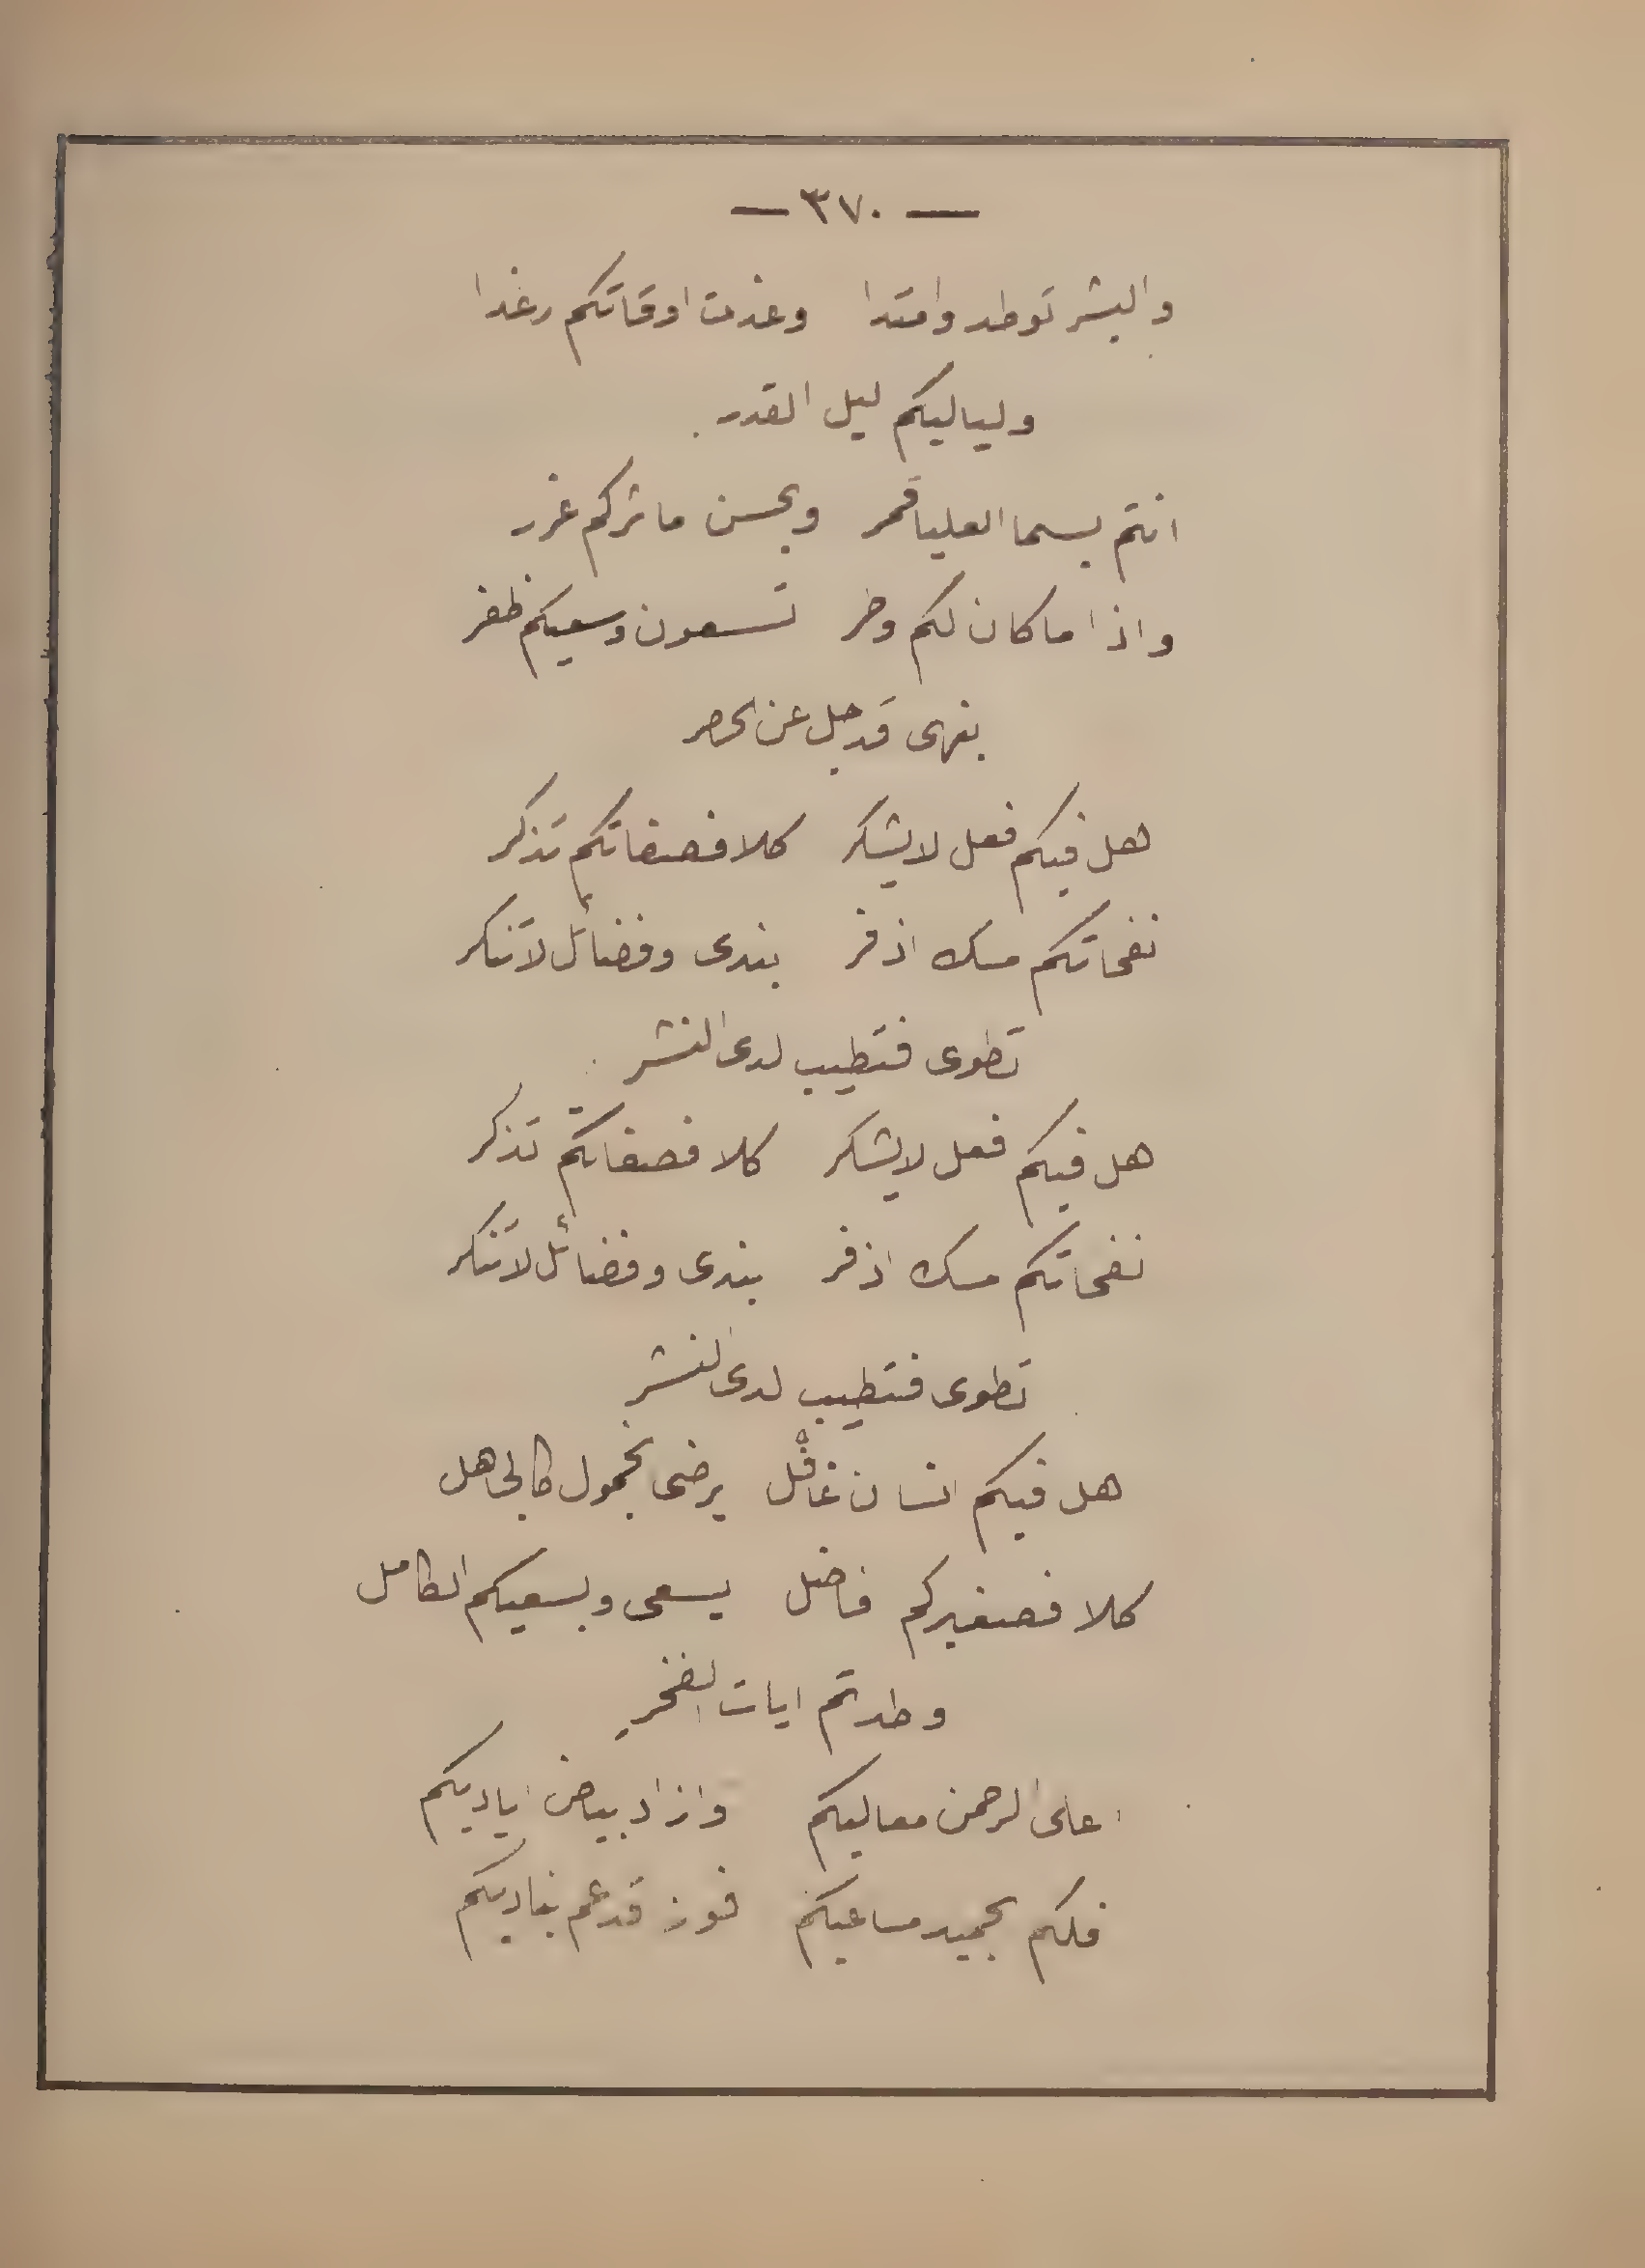 — ٣٧٠ —
والبشر توطد وامتدا وغدت اوقاتكم رغدا
ولياليكم ليل القدر
انتم بسما العليا قمر وبحسن ماثركم غرر
واذا ما كان لكم وطر تسعون وسعيكم ظفر
بنهى قد جل عن الحصر
هل فيكم فعل لا يشكر كلا فصفاتكم تذكر
نفحاتكم مسك اذفر بندى وفضائل لا تنكر
تطوى فتطيب لدى النشر
هل فيكم فعل لا يشكر كلا فصفاتكم تذكر
نفحاتكم مسك اذفر بندى وفضائل لا تنكر
تطوى فتطيب لدى النشر
هل فيكم انسان غافل يرضى بخمول كالجاهل
كلا فصغيركم فاضل يسعى وبسعيكم الكامل
وطدتم ايات الفخر
اعلى الرحمن معاليكم وازاد بياض اياديكم
فلكم بحميد مساعيكم فوز قد عم بناديكم